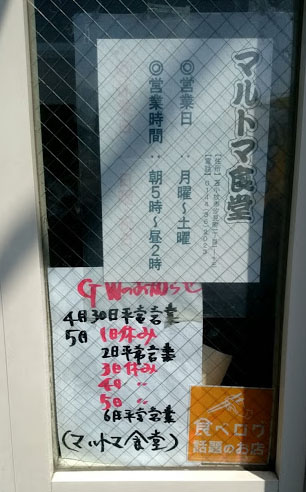 マルトマ食堂
◎営業日：月曜〜土曜
◎営業時間：朝5時〜昼2時
4月30日平常営業
5月1日休み
2日平常営業
3日休み
4日 〃
5日 〃
6日平常営業
(マルトマ食堂)
食べログ
話題のお店